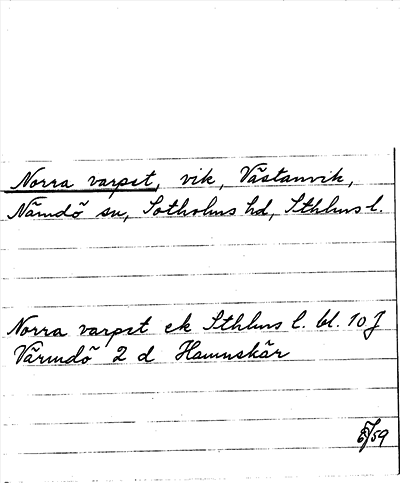 Norra varpet, vik, Västanvik,
Nämdö sn, Sotholms hd, Sthlms l.
Norra varpet ek Sthlms l. bl. 10 J
Värmdö 2 d Hamnskär
/59